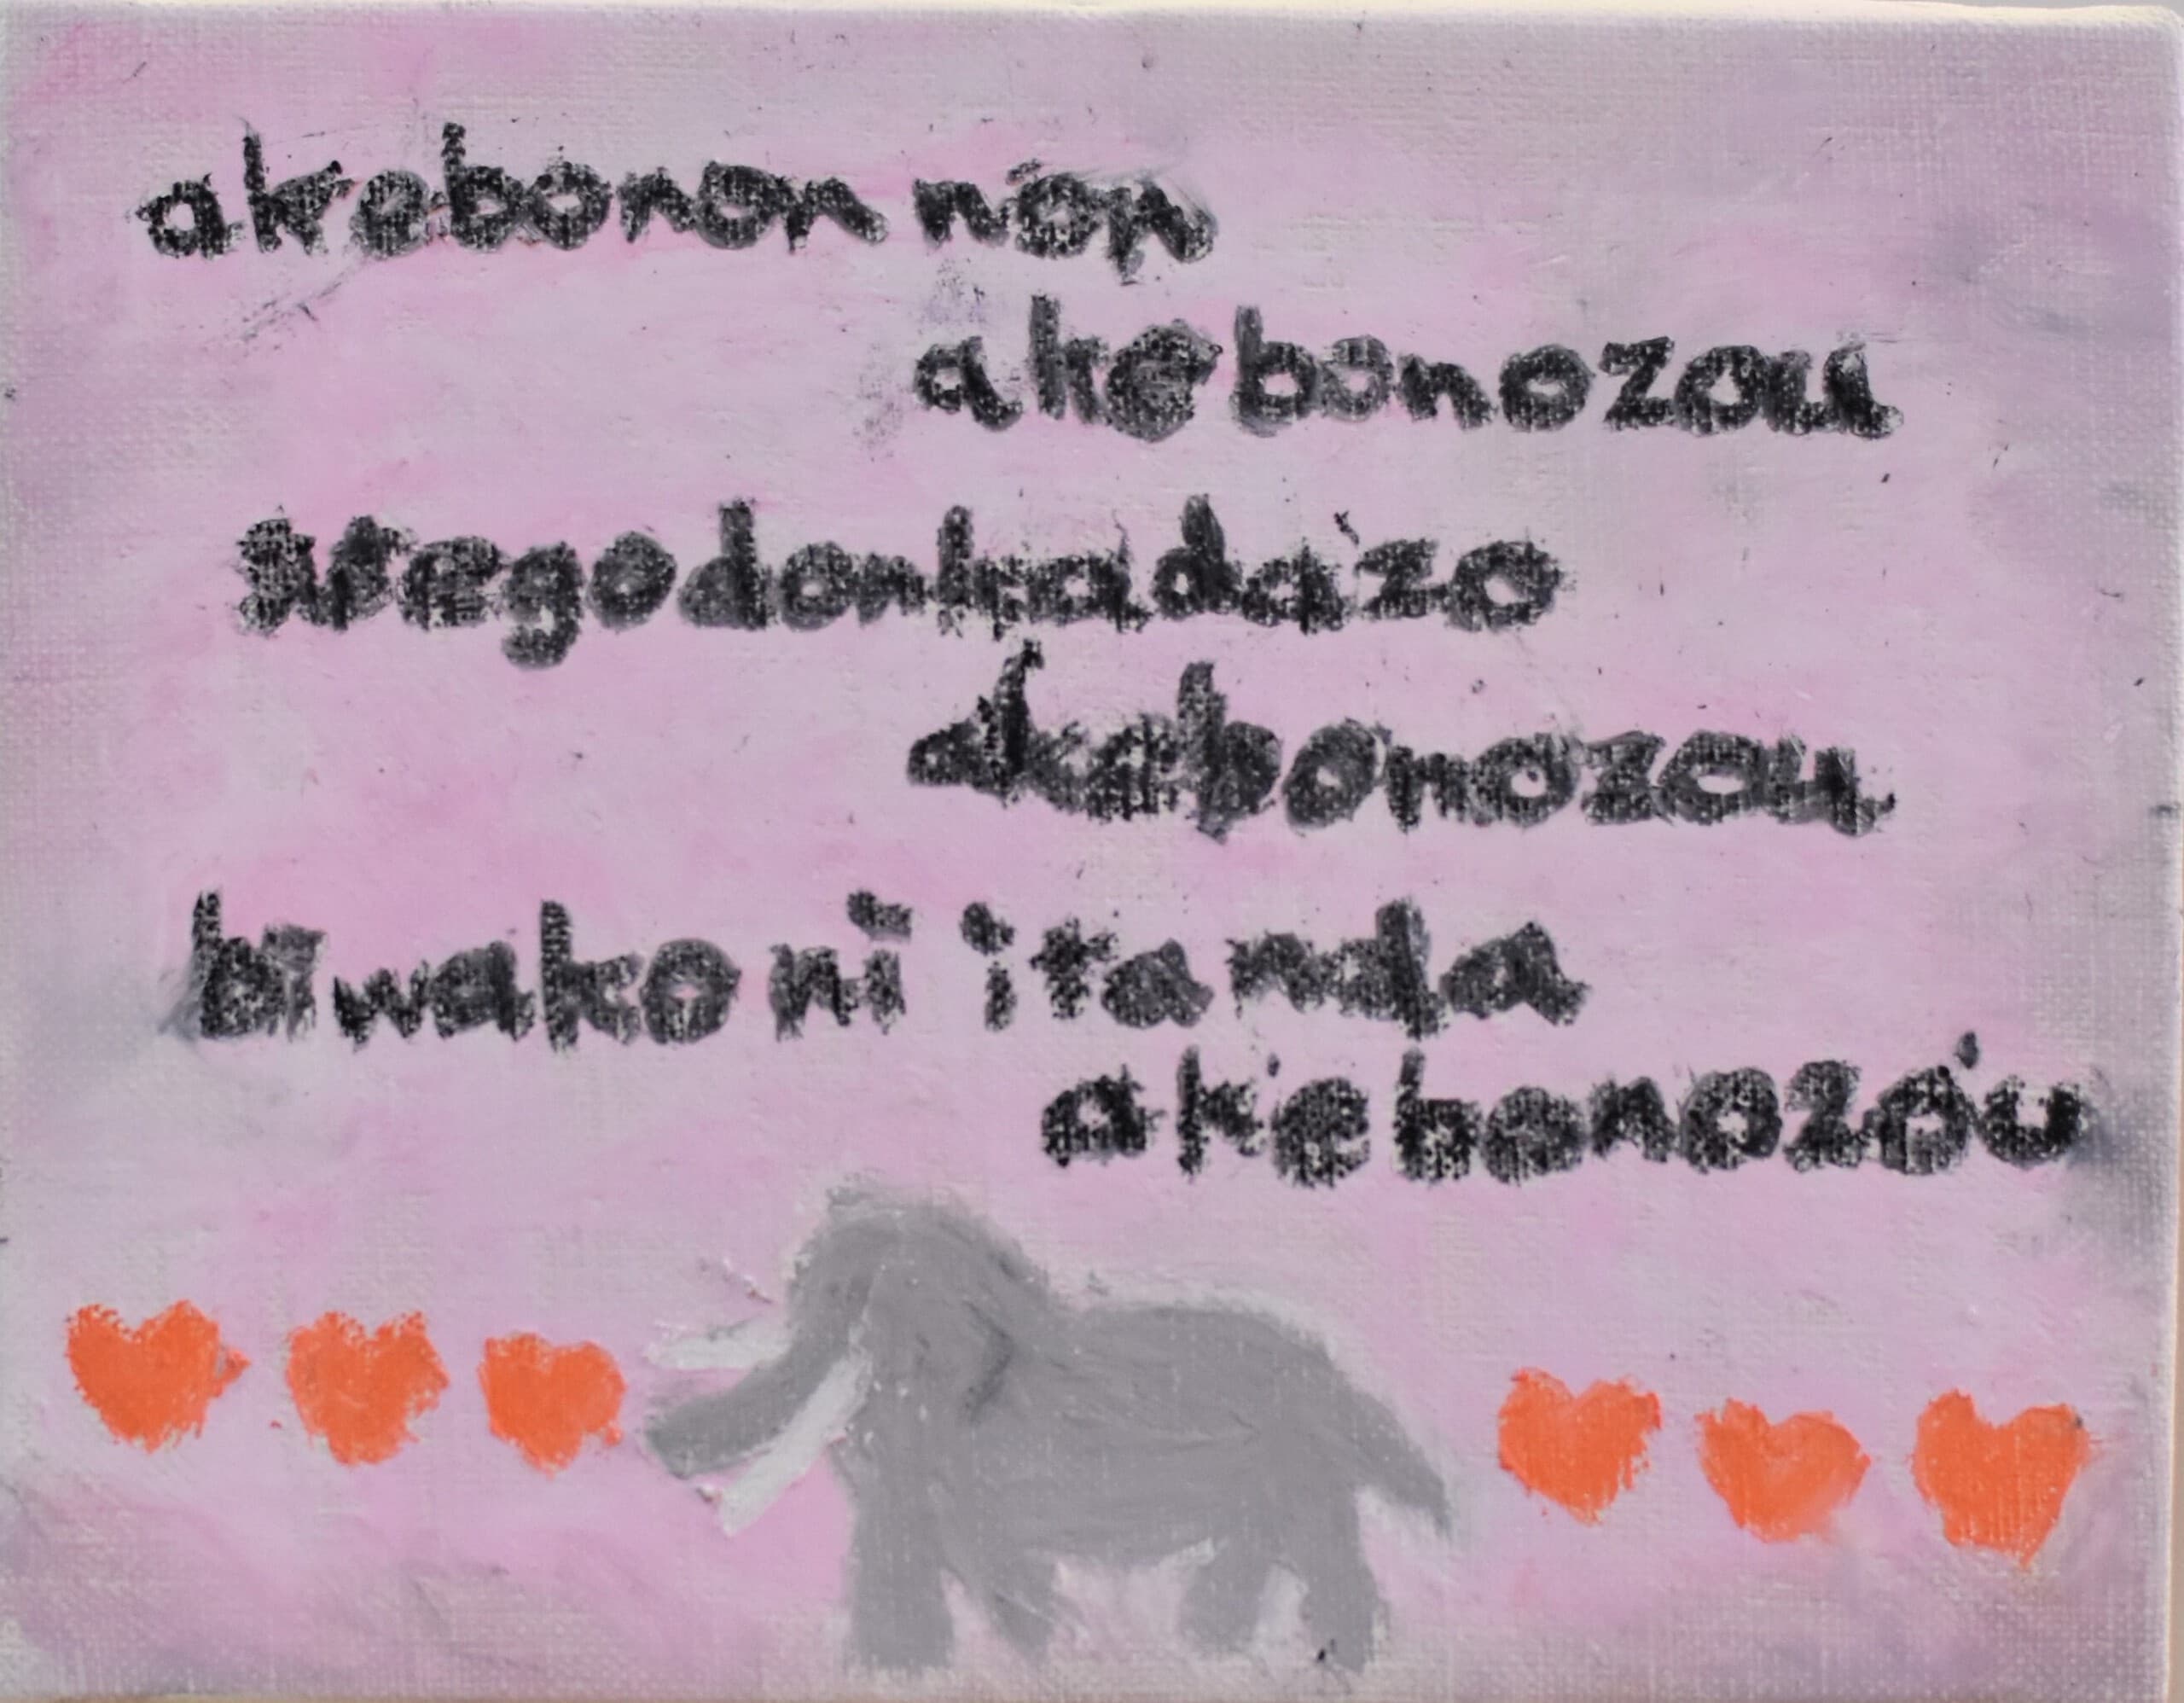 akebonon non
akebonozou
suregodonkadazo
akebonozou
biwako ni itanda
akebonozou